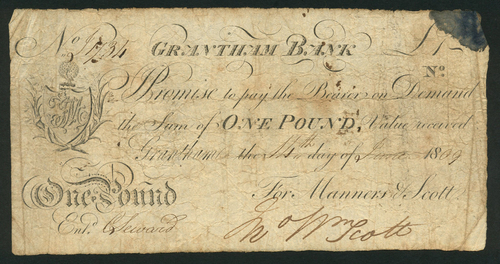 No GRANTHAM BANK £1-
No
I Promise to pay the Bearer on Demand
the Sum of ONE POUND, Value received
Grantham the 14th day of June 1809
One Pound For Manners & Scott
Entd. C Seward Jno Wm Scott